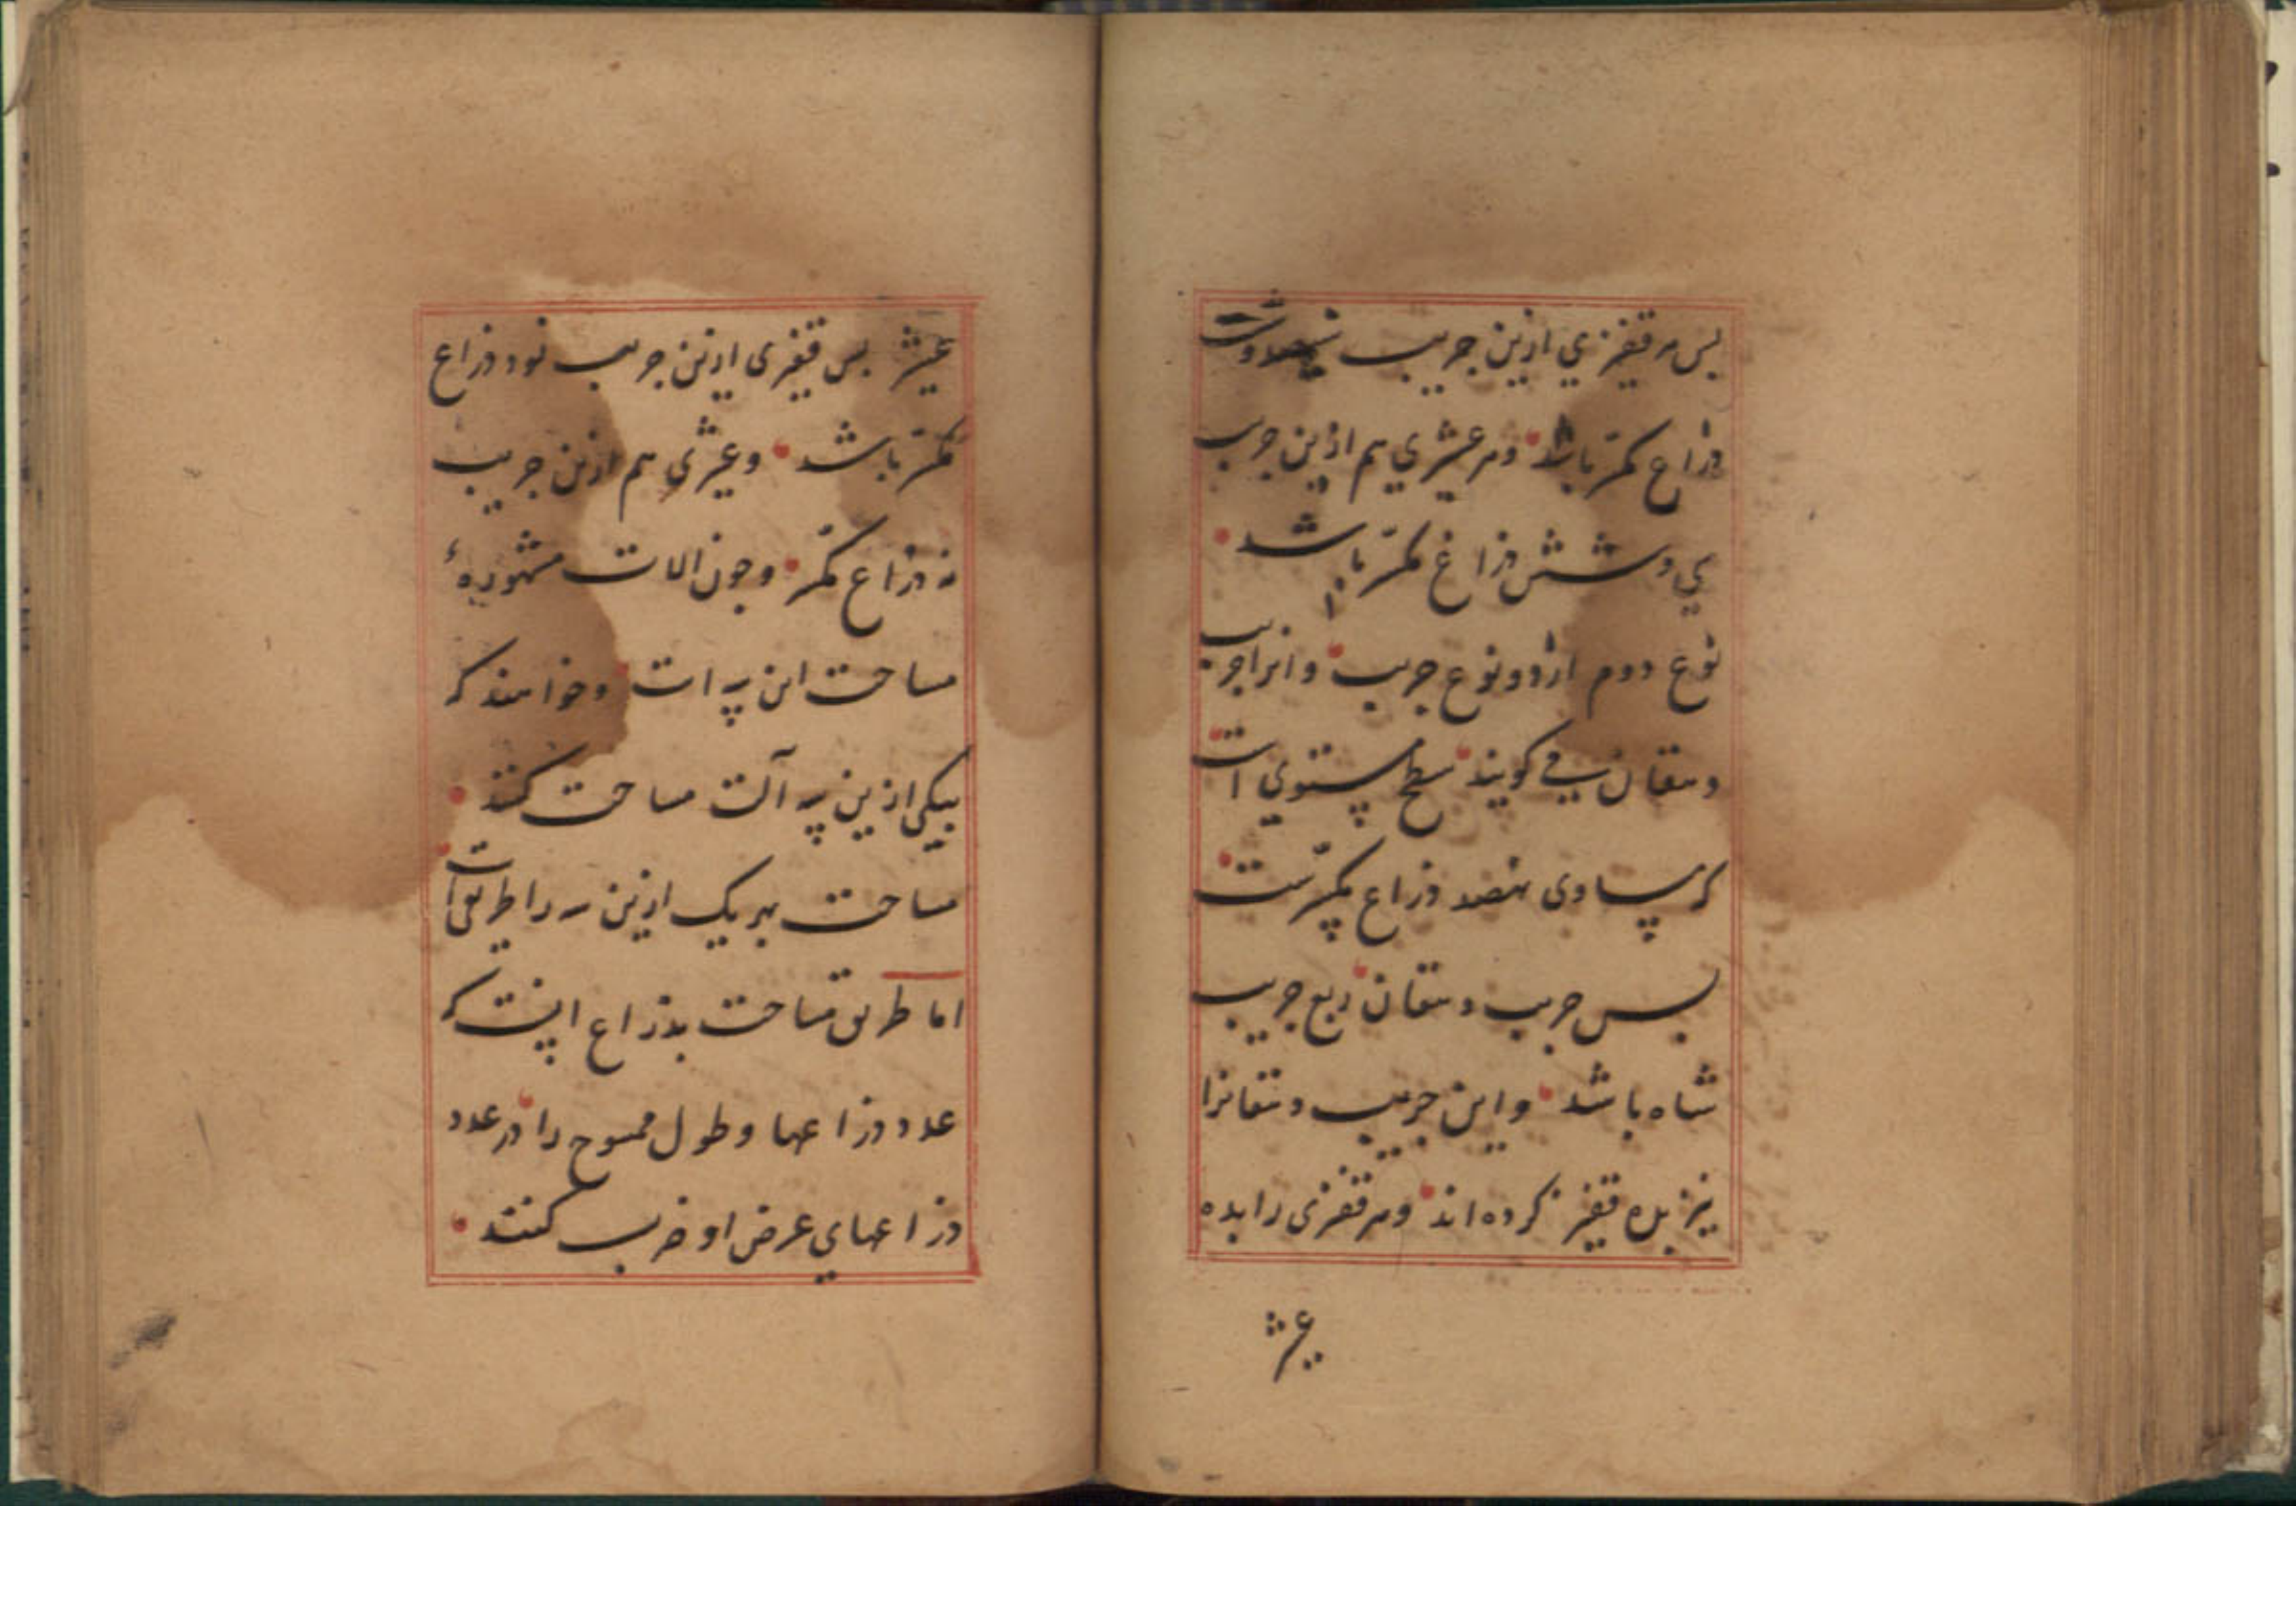 بس هر قفیزی ازین جریب سیصد و شصت
ذراع مکسّر باشد و هر عشیری هم ازین جریب
سی و شش ذراع مکسّر باشد
نوع دوم از دو نوع جریب و انرا جریب
دهقانی کویند سطح مستوی است
که مساوی نهصد ذراع مکسّرست
بس جریب دهقان ربع جریب
شاه باشد و این جریب دهقانرا
نیز بده قفیز کرده اند و هر قفیزی را بده
عشیر
عشیر بس قفیزی ازین جریب نود ذراع
مکسّر باشد و عشیری هم ازین جریب
نه ذراع مکسّر و چون الات مشهوره
مساحت این سه است و خواهند که
بیکی ازین سه آلت مساحت کنند
مساحت بهر یک ازین سه را طریقی است
اما طریق مساحت بذراع اینست که
عدد ذراعها و طول ممسوح را در عدد
ذراعهای عرض او ضرب کنند